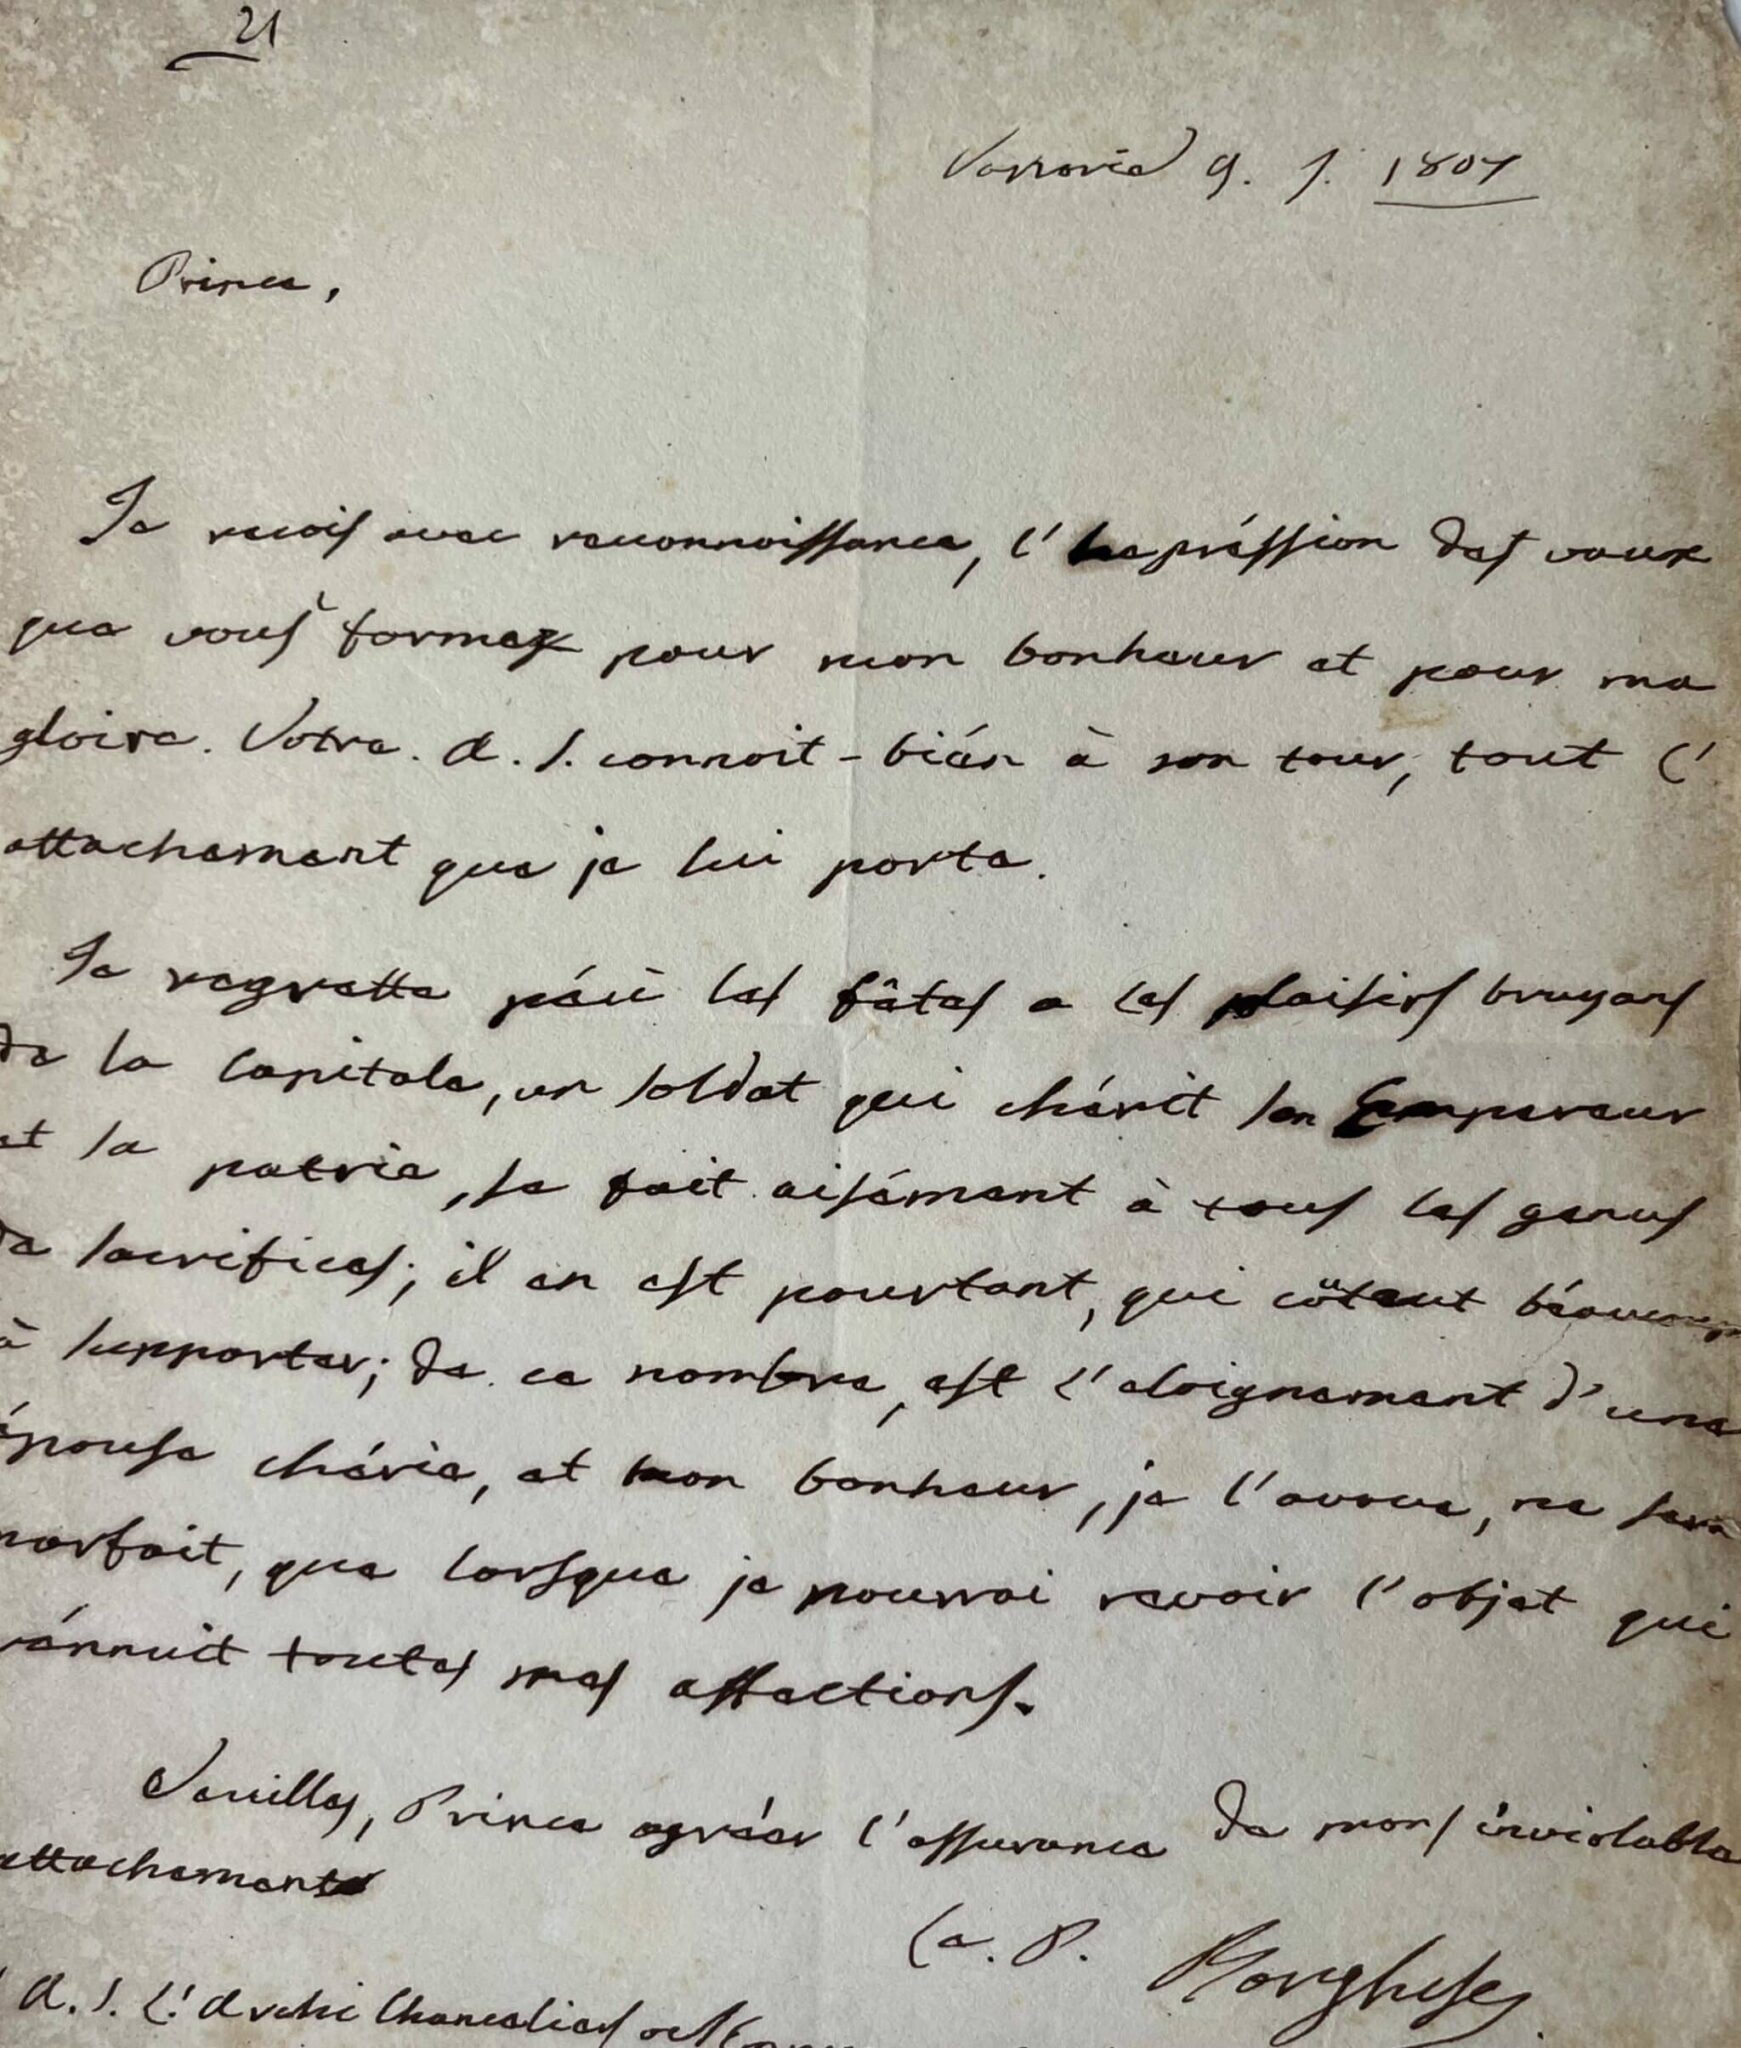 21
Varsovie 9. J. 1807
Prince,
Je recois avec reconnoissance, l'expréssion des vœux
que vous formez pour mon bonheur et pour ma
gloire. Votre. A. S. connoit-bién à son tour, tout l'
attachement que je lui porte.
Je regrette péù les fâtes e les plaisirs bruyans
de la capitale, un soldat qui chérit son Empereur
et sa patrie, se fait aisément à tous les genres
de sacrifices; il en est pourtant, qui coûtent béaucoup
à supporter; de ce nombre, est l'eloignement d'une
épouse chérie, et mon bonheur, je l'avoue, ne sera
parfait, que lorsque je pourrai revoir l'objet qui
rénnuit toutes mes affections.
Veuilles, Prince agréer l'assurance de mons inviolable
attachement
Le. P. Borghese
A. S. L'Archi Chancelier